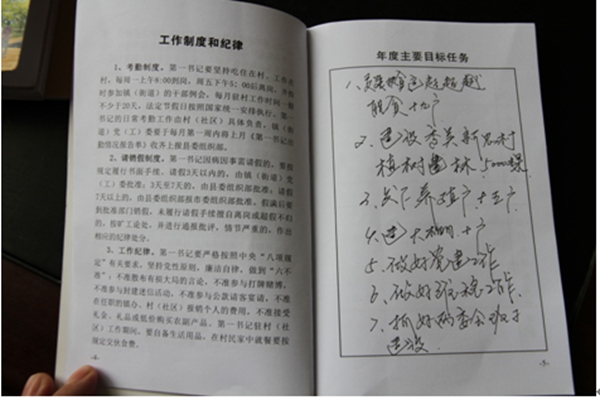 工作制度和纪律
1、考勤制度。第一书记要坚持吃住在村、工作在
村，每周一上午8:00到岗，周五下午5:00后离岗，并按
时参加镇（街道）的干部例会，每月驻村工作时间一般
不少于20天，法定节假日按照国家统一安排执行。第一
书记的日常考勤工作由村（社区）具体负责，镇（街
道）党（工）委要于每月第一周内将上月《第一书记出
勤情况报告单》收齐上报县委组织部。
2、请销假制度。第一书记因病因事需请假的，要按
规定履行书面手续，请假3天以内的，由镇（街道）党
（工）委批准；3天至7天的，由县委组织部批准；请假
7天以上的，由县委组织部报市委组织部批准。假满后要
到批准部门销假，未履行请假手续擅自离岗或超假不归
的，按旷工论处，并进行通报批评，情节严重的，作出
相应的纪律处分。
3、工作纪律。第一书记要严格按照中央“八项规
定”有关要求，坚持党性原则，廉洁自律，做到“六不
准”：不准散布有损大局的言论，不准参与打牌赌博，
不准参与封建迷信活动，不准参与公款请客宴请，不准
在任职的镇办、村（社区）报销个人的费用，不准接受
礼金、礼品或低价购买农副产品。第一书记驻村（社
区）工作期间，要自备生活用品，在村民家中就餐要按
规定交伙食费。
-4-
年度主要目标任务
1、
脱贫十九户
2、建设秀美新农村
植树造林5000棵
3、发了养殖户十三户
4、建大棚十户
5、做好党建工作
6、做好维稳工作
7、抓好两委会班子
建设
-5-